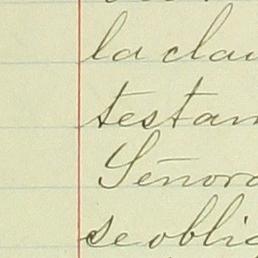 la clau
testam
Señora
se oblig